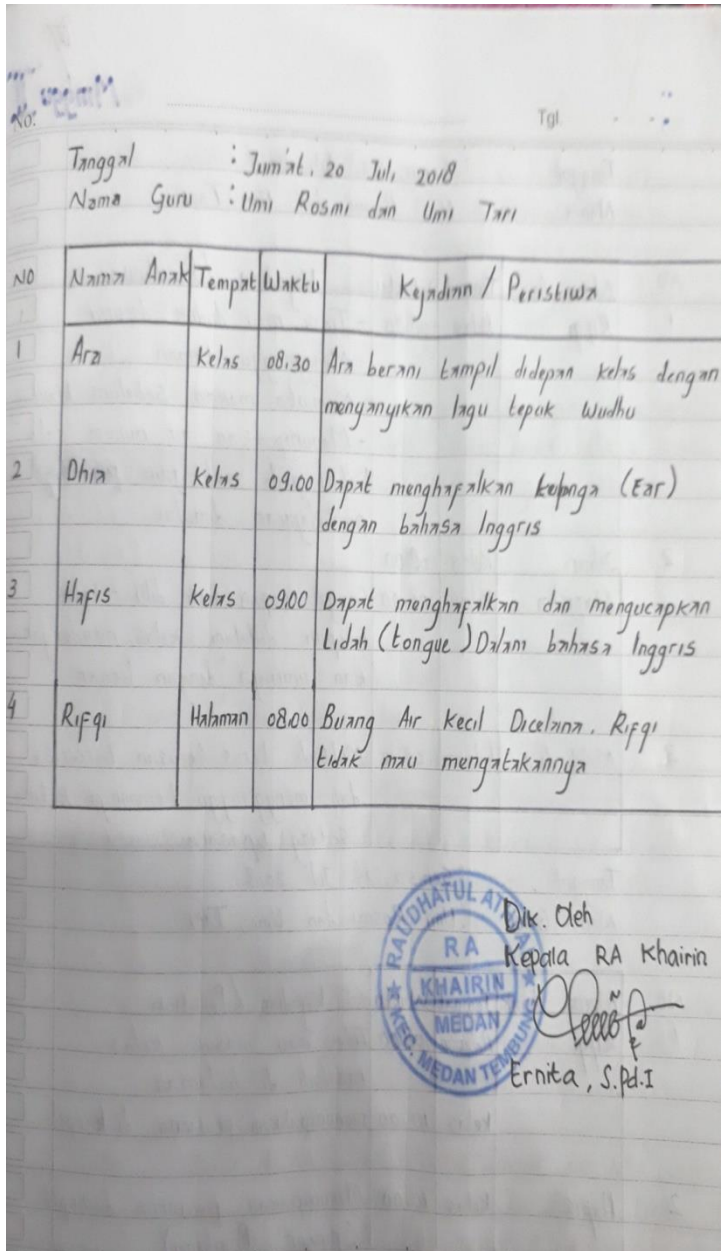 No:
Tgl.
Tanggal : Jum'at, 20 Juli 2018
Nama Guru : Umi Rosmi dan Umi Tari
NO Nama Anak Tempat Waktu Kejadian / Peristiwa
1 Ara Kelas 08.30 Ara berani tampil didepan kelas dengan
menyanyikan lagu tepuk Wudhu
2 Dhia Kelas 09.00 Dapat menghafalkan (Ear)
dengan bahasa Inggris
3 Hafis Kelas 09.00 Dapat menghafalkan dan mengucapkan
Lidah (tongue) Dalam bahasa Inggris
4 Rifqi Halaman 08.00 Buang Air Kecil Dicelana. Rifqi
tidak mau mengatakannya
RAUDHATUL
RA
KHAIRIN
MEDAN
KEC. MEDAN TEMBUNG
Dik. Oleh
Kepala RA Khairin
Ernita, S.Pd.I